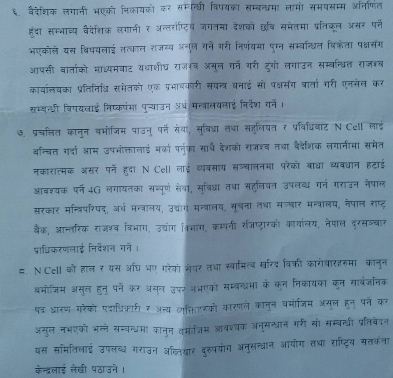 ६. वैदेशिक लगानी भएको निकायको कर सम्बन्धी विषयका सम्बन्धमा लामो समयसम्म अनिर्णित
हुंदा सम्भाव्य वैदेशिक लगानी र अन्तर्राष्ट्रिय जगतमा देशको छवि समेतमा प्रतिकूल असर पर्ने
भएकोले यस विषयलाई तत्काल राजस्व असुल गर्ने गरी निर्णयमा पुग्न सम्बन्धित बिक्रेता पक्षसंग
आपसी वार्ताको माध्यमबाट यथाशीघ्र राजश्व असुल गर्ने गरी टुंगो लगाउन सम्बन्धित राजश्व
कार्यालयका प्रतिनिधि समेतको एक प्रभावकारी संयन्त्र बनाई सो पक्षसंग वार्ता गरी एनसेल कर
सम्बन्धी विषयलाई निष्कर्षमा पुर्‍याउन अर्थ मन्त्रालयलाई निर्देश गर्ने ।
७. प्रचलित कानून बमोजिम पाउनु पर्ने सेवा, सुविधा तथा सहुलियत र प्रविधिबाट N Cell लाई
बन्चित गर्दा आम उपभोक्तालाई मर्का पर्नुका साथै देशको राजश्व तथा वैदेशिक लगानीमा समेत
नकारात्मक असर पर्ने हुंदा N Cell लाई व्यवसाय सञ्चालनमा परेको बाधा व्यवधान हटाई
आवश्यक पर्ने 4G लगायतका सम्पूर्ण सेवा, सुविधा तथा सहुलियत उपलब्ध गर्न गराउन नेपाल
सरकार मन्त्रिपरिषद्, अर्थ मन्त्रालय, उद्योग मन्त्रालय, सूचना तथा सञ्चार मन्त्रालय, नेपाल राष्ट्र
बैंक, आन्तरिक राजश्व विभाग, उद्योग विभाग, कम्पनी रजिष्ट्रारको कार्यालय, नेपाल दूरसञ्चार
प्राधिकरणलाई निर्देशन गर्ने ।
८. N Cell को हाल र यस अघि भए गरेको शेयर तथा स्वामित्व खरिद विक्री कारोवारहरुमा कानून
बमोजिम असुल हुनु पर्ने कर असुल उपर नभएको सम्बन्धमा के कुन निकायका कुन सार्वजनिक
पद धारण गरेको पदाधिकारी र अन्य व्यक्तिहरुको कारणले कानून बमोजिम असुल हुनु पर्ने कर
असुल नभएको भन्ने सम्बन्धमा कानून बमोजिम आवश्यक अनुसन्धान गरी सो सम्बन्धी प्रतिवेदन
यस समितिलाई उपलब्ध गराउन अख्तियार दुरुपयोग अनुसन्धान आयोग तथा राष्ट्रिय सतर्कता
केन्द्रलाई लेखी पठाउने ।